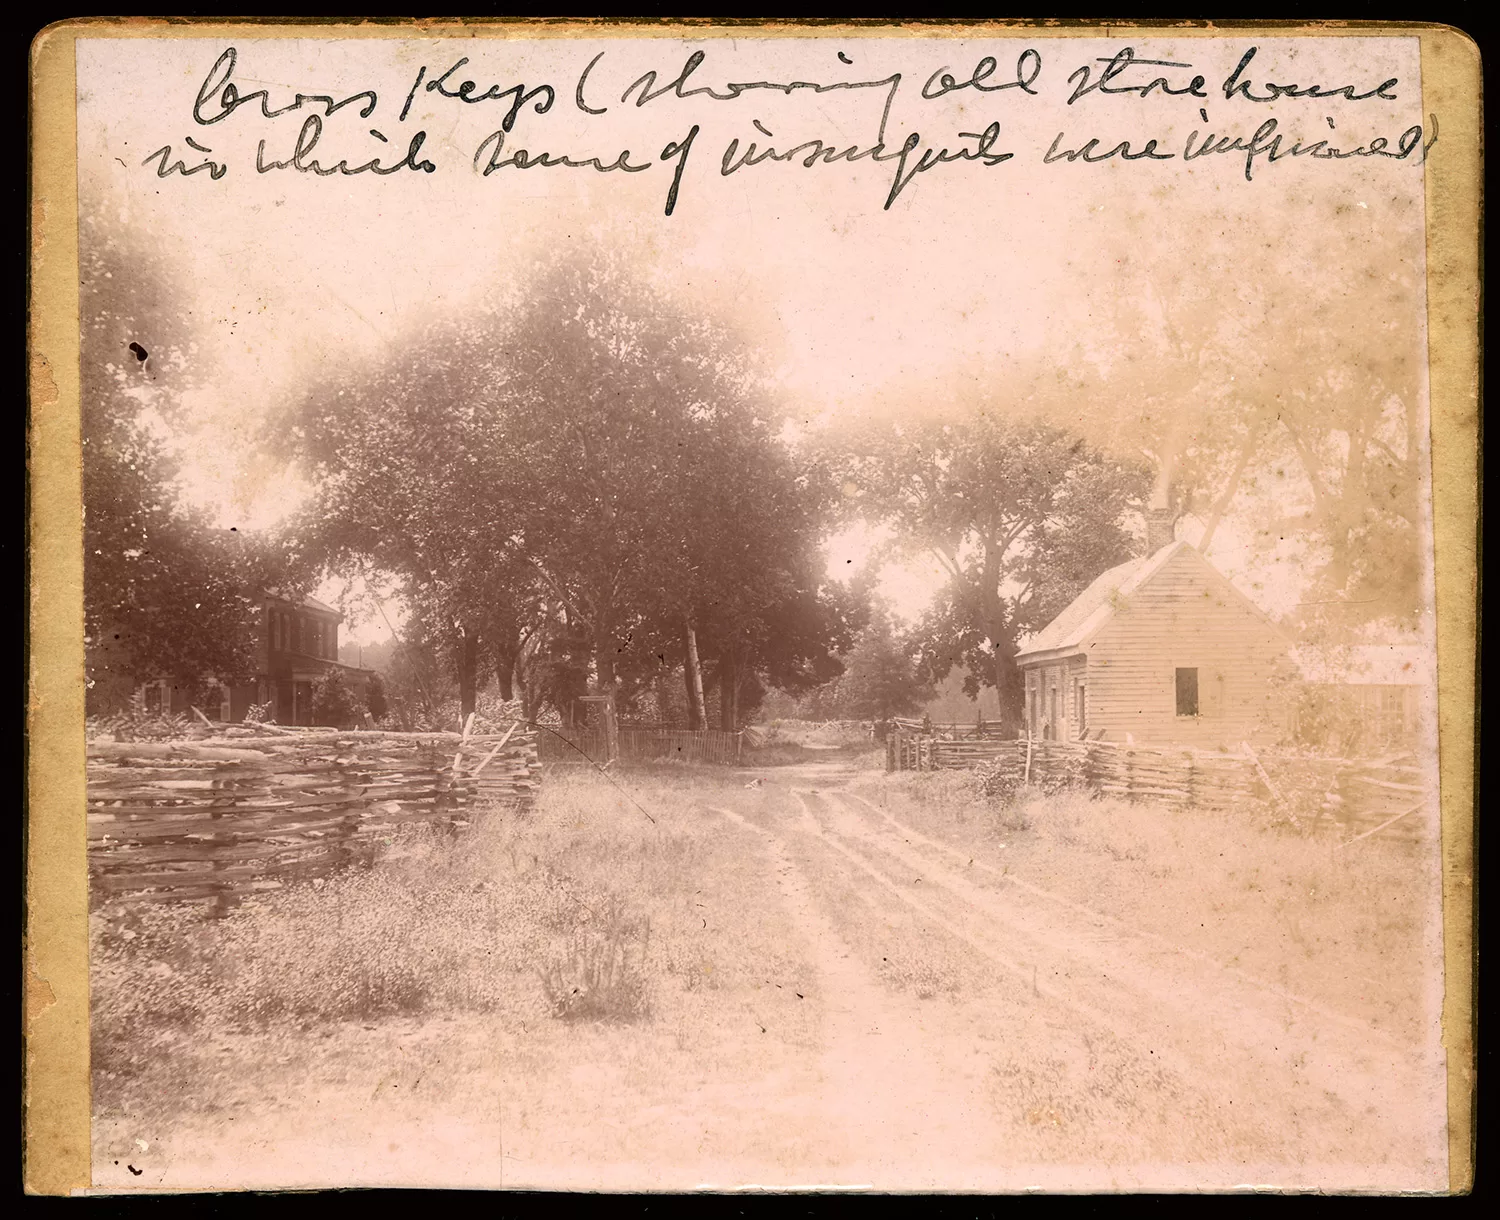 Cross Keys (showing old storehouse
in which some of insurgents were imprisoned)